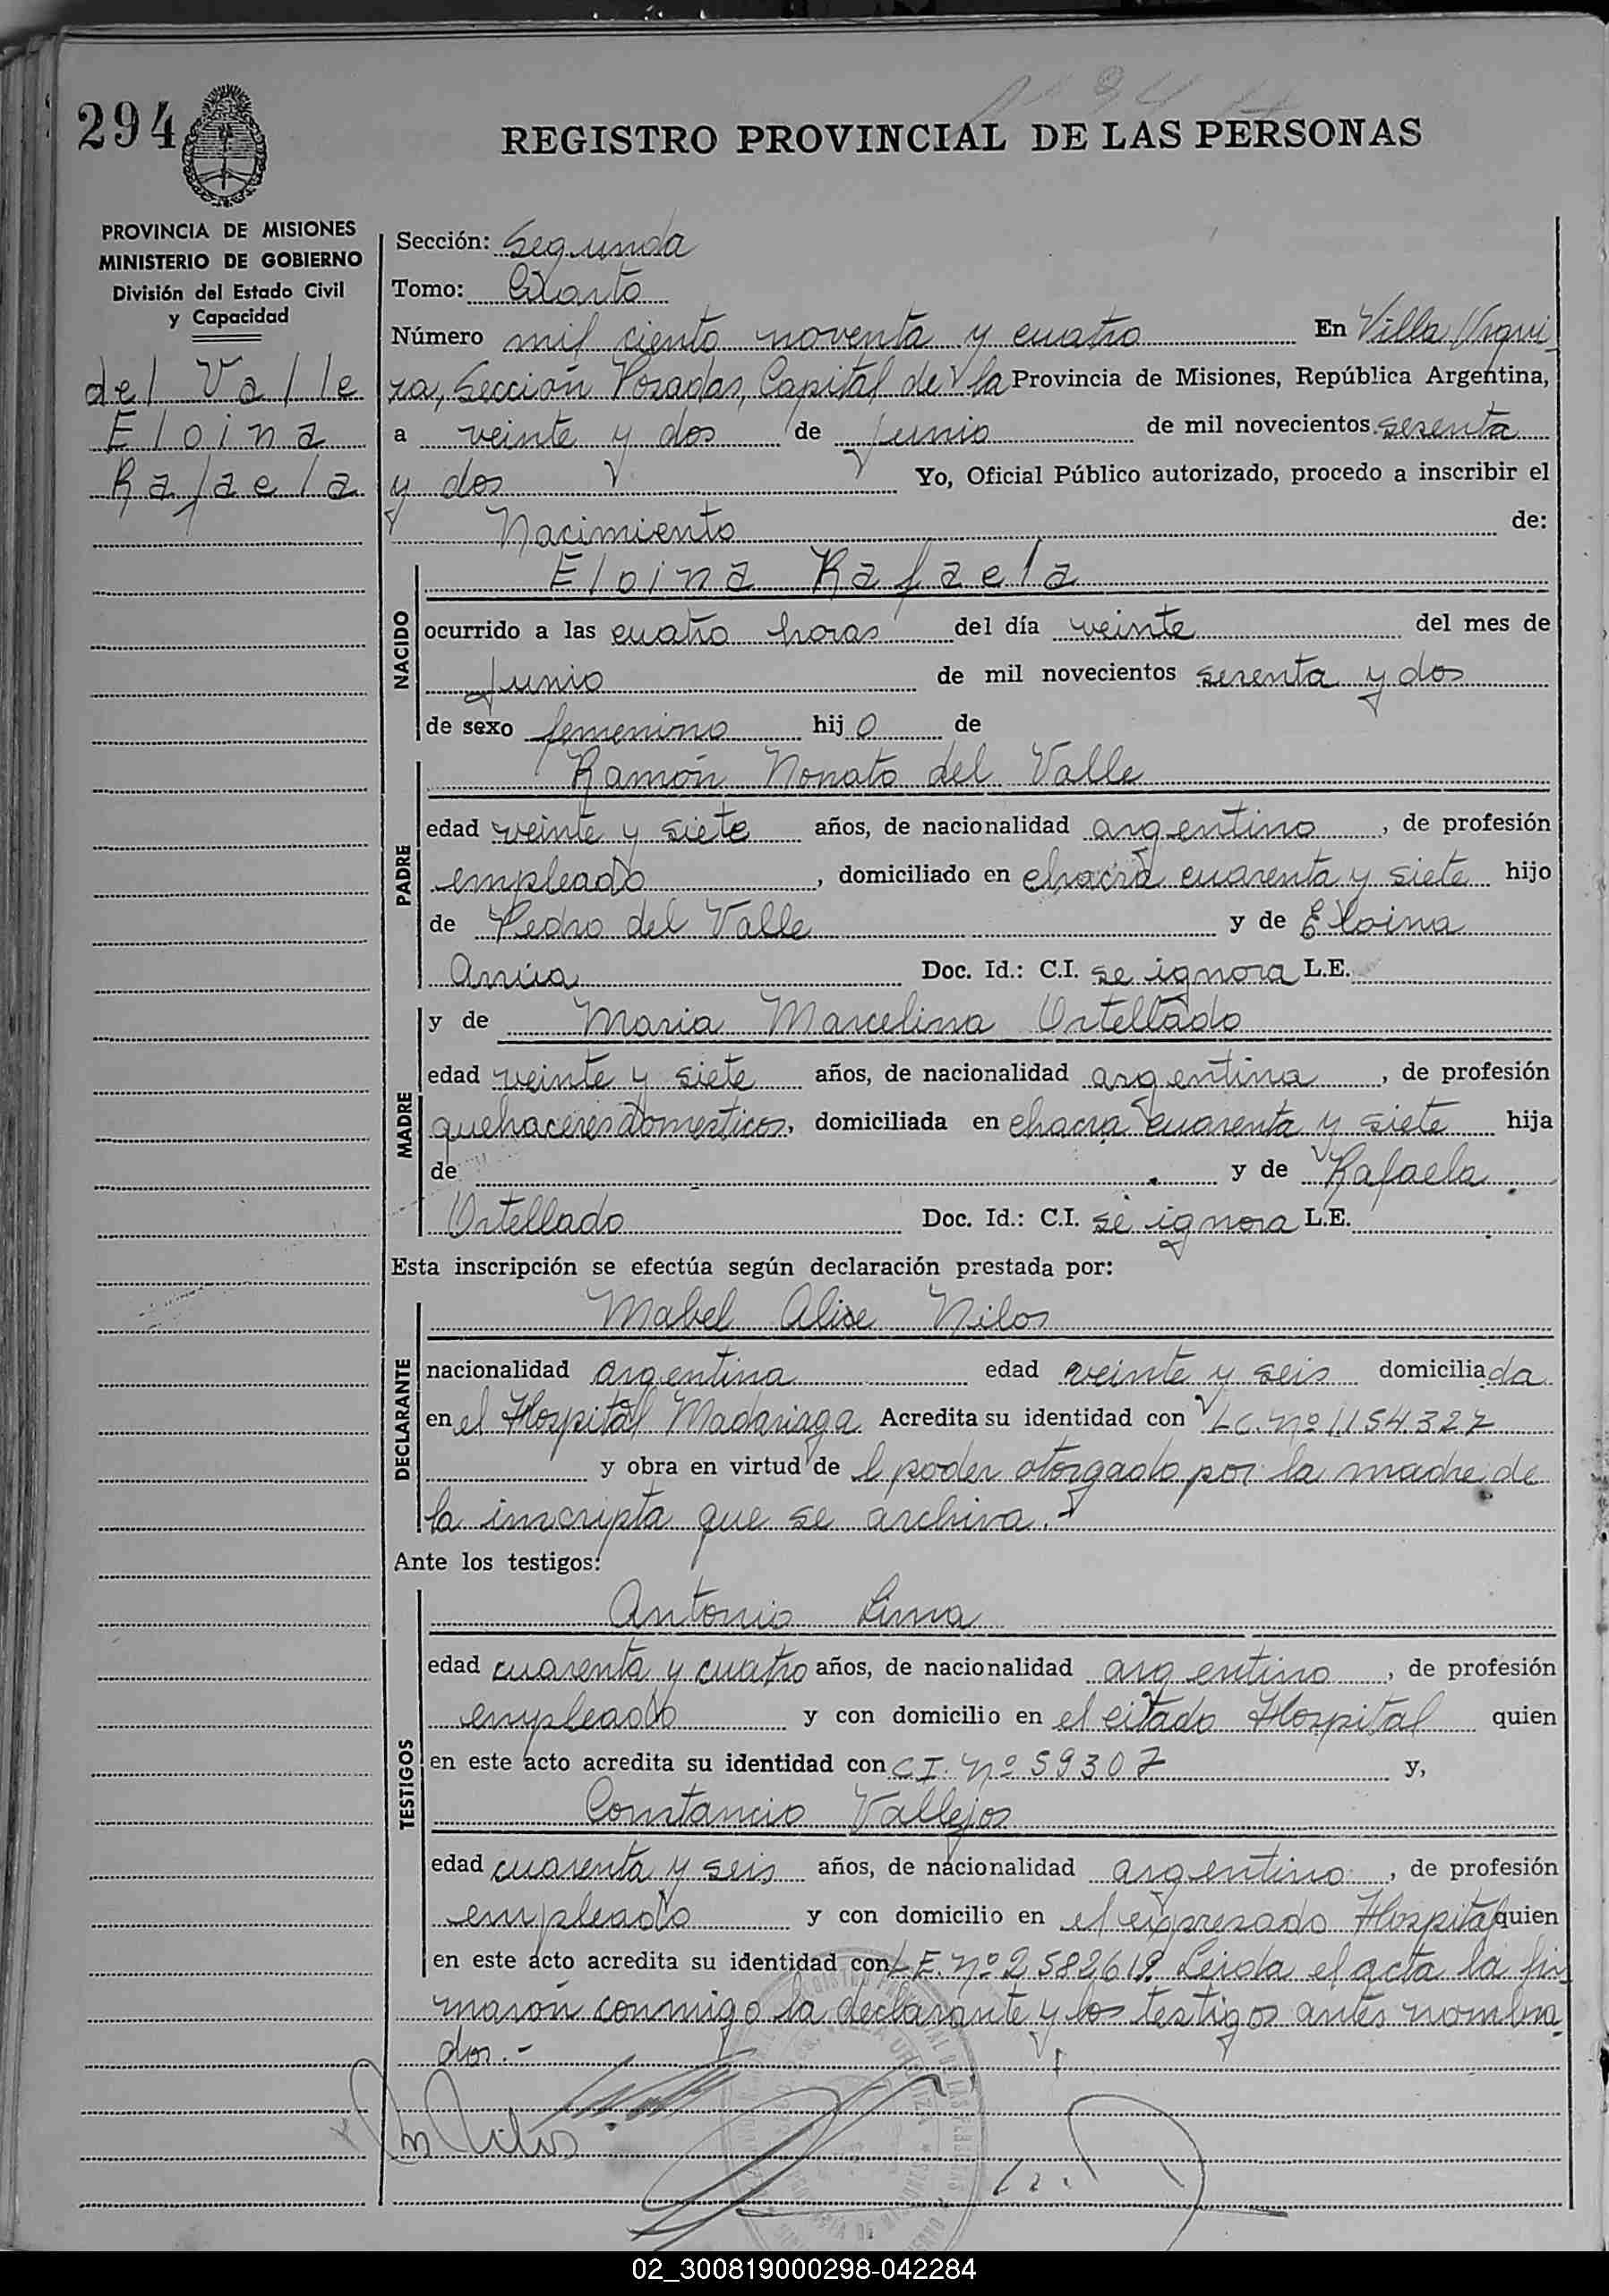 294
REGISTRO PROVINCIAL DE LAS PERSONAS
PROVINCIA DE MISIONES
MINISTERIO DE GOBIERNO
División del Estado Civil
y Capacidad
del Valle
Eloina
Rafaela
Sección: Segunda
Tomo: Cuarto
Número mil ciento noventa y cuatro En Villa Urqui
za, Sección Posadas, Capital de la Provincia de Misiones, República Argentina,
a veinte y dos de Junio de mil novecientos sesenta
y dos Yo, Oficial Público autorizado, procedo a inscribir el
Nacimiento de:
NACIDO
Eloina Rafaela
ocurrido a las cuatro horas del día veinte del mes de
Junio de mil novecientos sesenta y dos
de sexo femenino hij o de
PADRE
Ramón Nonato del Valle
edad veinte y siete años, de nacionalidad argentino, de profesión
empleado, domiciliado en chacra cuarenta y siete hijo
de Pedro del Valle y de Eloina
Doc. Id.: C.I. se ignora L.E.
MADRE
y de Maria Marcelina Ortellado
edad veinte y siete años, de nacionalidad argentina, de profesión
quehaceres domesticos, domiciliada en chacra cuarenta y siete hija
de y de Rafaela
Ortellado Doc. Id.: C.I. se ignora L.E.
Esta inscripción se efectúa según declaración prestada por:
DECLARANTE
Mabel Alice Nilos
nacionalidad argentina edad veinte y seis domiciliada
en el Hospital Madariaga Acredita su identidad con L.C. Nº 1.154.327
y obra en virtud de l poder otorgado por la madre de
la inscripta que se archiva.-
Ante los testigos:
TESTIGOS
Antonio Lima
edad cuarenta y cuatro años, de nacionalidad argentino, de profesión
empleado y con domicilio en el citado Hospital quien
en este acto acredita su identidad con C.I. Nº 59307 y,
Constancio Vallejos
edad cuarenta y seis años, de nacionalidad argentino, de profesión
empleado y con domicilio en el expresado Hospital quien
en este acto acredita su identidad con L.E. Nº 2.582.619. Leida el acta la fir
maron conmigo la declarante y los testigos antes nombra
dos.-
02_300819000298-042284